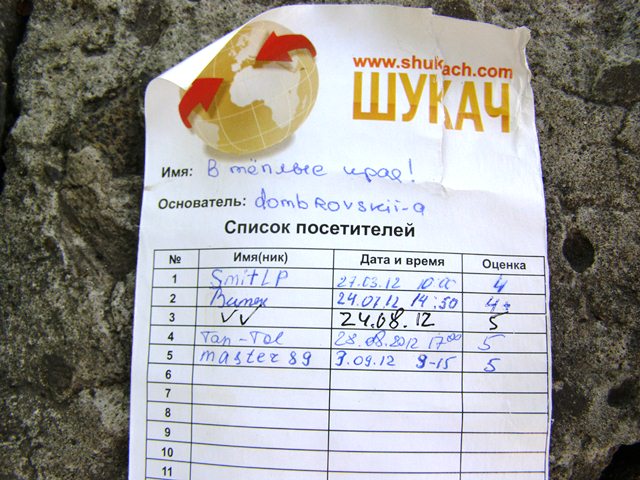 www.shukach.com
ШУКАЧ
Имя: В тёплые края!
Основатель: dombrovskii-a
Список посетителей
№ Имя(ник) Дата и время Оценка
1 SmitLP 27.03.12 10:00 4
2 24.07.12 14:50 4+
3 VV 24.08.12 5
4 Tan-Tol 28.08.2012 17:00 5
5 master89 9.09.12 9-15 5
6
7
8
9
10
11